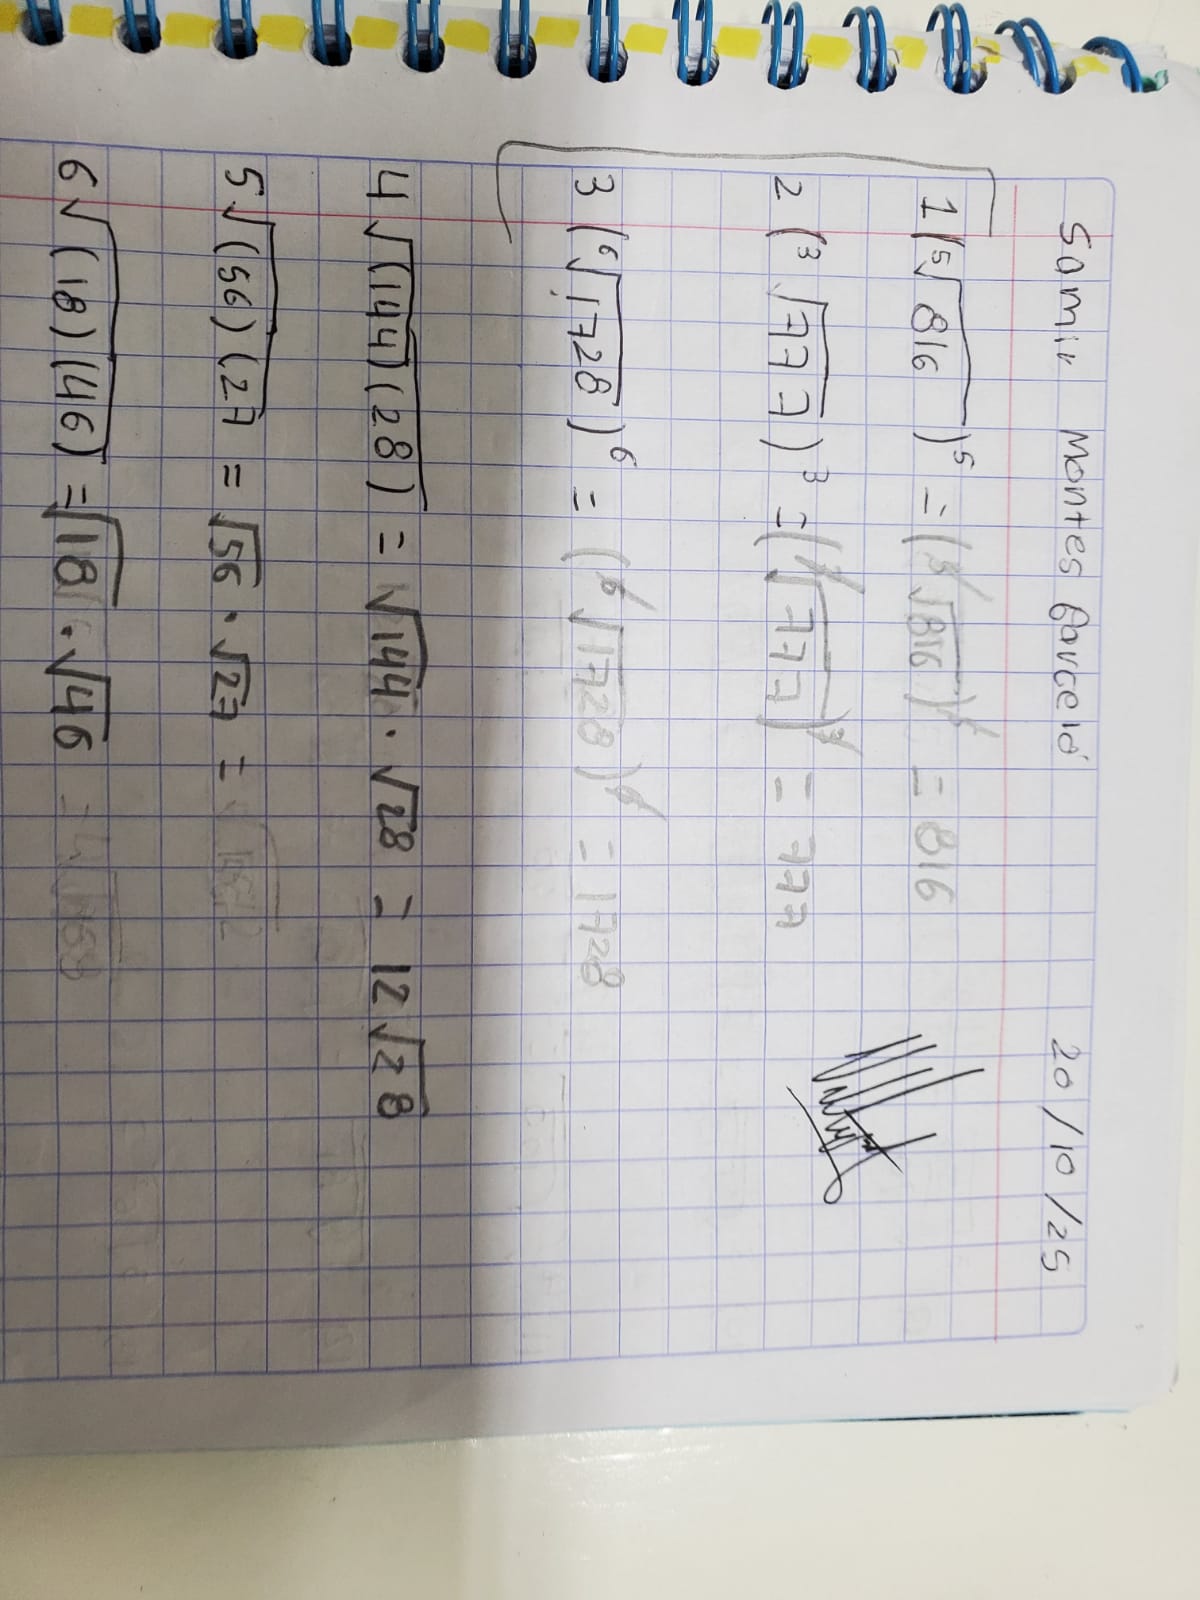 Samir Montes Garcela 20/10/25
1 (⁵√816)⁵ = (⁵√816)⁵ = 816
2 (³√777)³ = (³√777)³ = 777
3 (⁶√1728)⁶ = (⁶√1728)⁶ = 1728
4 √(144)(28) = √144 · √28 = 12√28
5 √(56)(27 = √56 · √27 =
6 √(18)(46) = √18 · √46